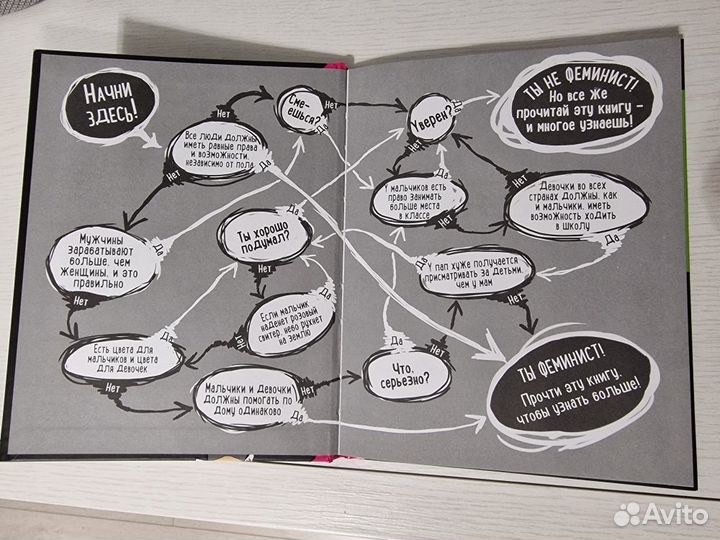 НАЧНИ
ЗДЕСЬ!
Все люди должны
иметь равные права
и возможности,
независимо от пола
Нет
Да
Сме-
ёшься?
Нет
Да
Уверен?
Нет
Да
ТЫ НЕ ФЕМИНИСТ!
Но все же
прочитай эту книгу –
и многое узнаешь!
У мальчиков есть
право занимать
больше места
в классе
Да
Нет
Девочки во всех
странах должны, как
и мальчики, иметь
возможность ходить
в школу
Нет
Да
Мужчины
зарабатывают
больше, чем
женщины, и это
правильно
Да
Нет
Ты хорошо
подумал?
Да
Нет
У пап хуже получается
присматривать за детьми,
чем у мам
Да
Нет
Если мальчик
наденет розовый
свитер, небо рухнет
на землю
Да
Нет
Есть цвета для
мальчиков и цвета
для девочек
Да
Нет
Мальчики и девочки
должны помогать по
дому одинаково
Нет
Да
Что,
серьезно?
Да
Нет
ТЫ ФЕМИНИСТ!
Прочти эту книгу,
чтобы узнать больше!
Avito